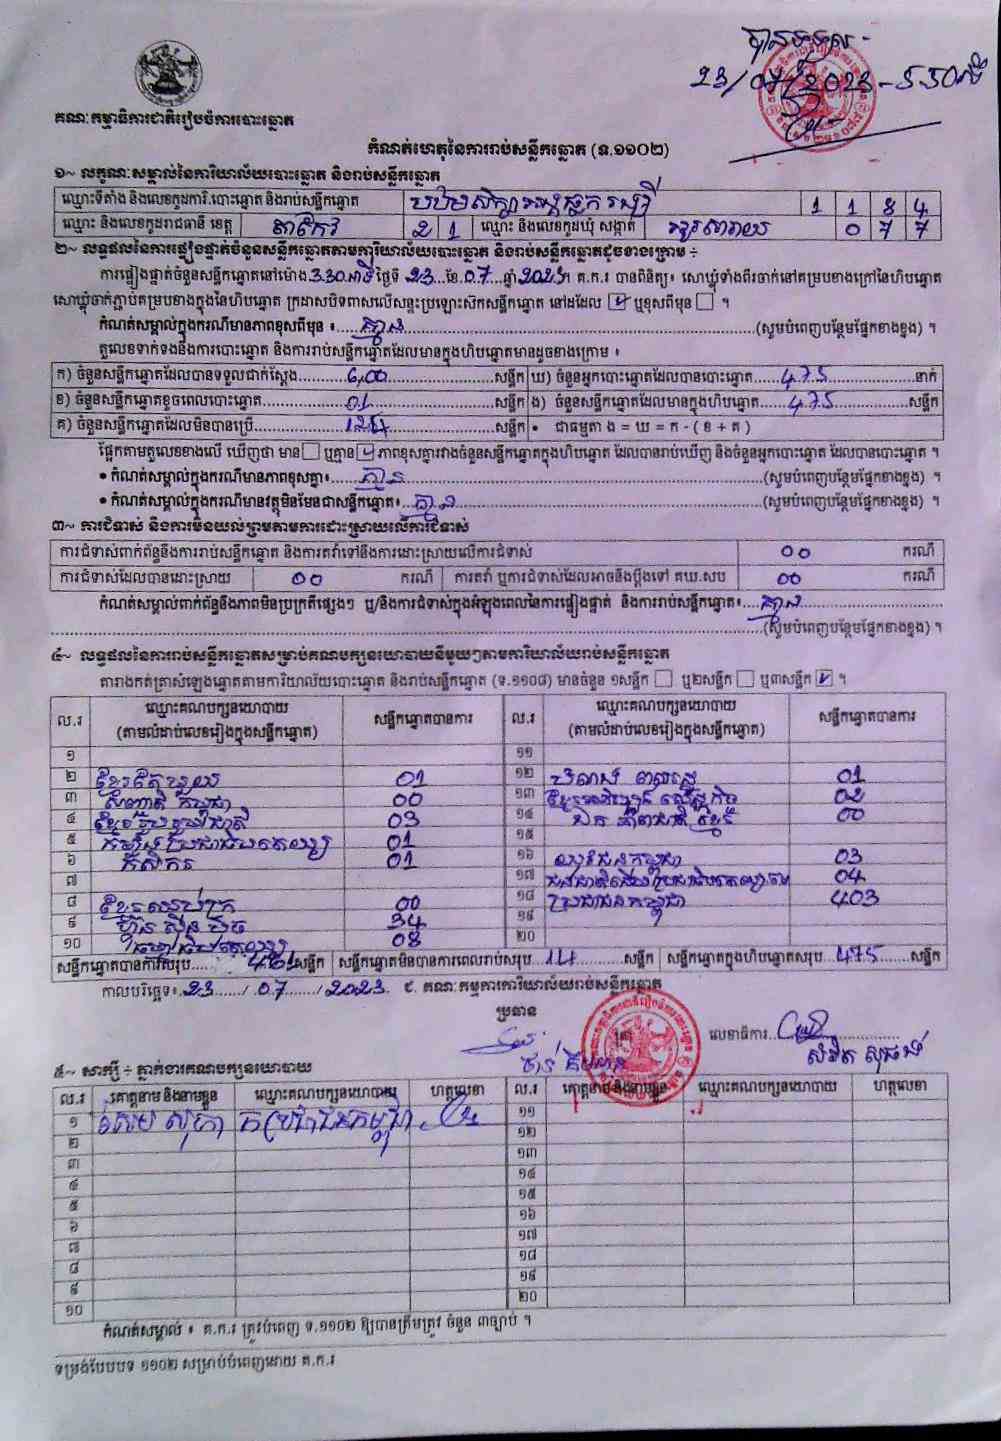 បានទទួល
23/07/2023 - 5.50
គណៈកម្មាធិការជាតិរៀបចំការបោះឆ្នោត
កំណត់ហេតុនៃការរាប់សន្លឹកឆ្នោត (ទ.១១០២)
១~ លក្ខណៈសម្គាល់នៃការិយាល័យបោះឆ្នោត និងរាប់សន្លឹកឆ្នោត
ឈ្មោះទីតាំង និងលេខកូដការិ.បោះឆ្នោត និងរាប់សន្លឹកឆ្នោត 1 1 8 4
ឈ្មោះ និងលេខកូដរាជធានី ខេត្ត តាកែវ 2 1 ឈ្មោះ និងលេខកូដឃុំ សង្កាត់ 0 7 7
២~ លទ្ធផលនៃការផ្ទៀងផ្ទាត់ចំនួនសន្លឹកឆ្នោតតាមការិយាល័យបោះឆ្នោត និងរាប់សន្លឹកឆ្នោតដូចខាងក្រោម ÷
ការផ្ទៀងផ្ទាត់ចំនួនសន្លឹកឆ្នោតនៅម៉ោង 3.30 នាទី ថ្ងៃទី 23 ខែ 07 ឆ្នាំ 2023។ គ.ក.រ បានពិនិត្យ៖ សោឃ្លុំទាំងពីរចាក់នៅគម្របខាងក្រៅនៃហិបឆ្នោត
សោឃ្លុំចាក់ភ្ជាប់គម្របខាងក្នុងនៃហិបឆ្នោត ក្រដាសបិទពាសលើសន្ទះប្រឡោះសិកសន្លឹកឆ្នោត នៅដដែល ☑ ឬខុសពីមុន ☐ ។
កំណត់សម្គាល់ក្នុងករណីមានភាពខុសពីមុន ៖ គ្មាន (សូមបំពេញបន្ថែមផ្នែកខាងខ្នង) ។
តួលេខទាក់ទងនឹងការបោះឆ្នោត និងការរាប់សន្លឹកឆ្នោតដែលមានក្នុងហិបឆ្នោតមានដូចខាងក្រោម ៖
ក) ចំនួនសន្លឹកឆ្នោតដែលបានទទួលជាក់ស្តែង 600 សន្លឹក ឃ) ចំនួនអ្នកបោះឆ្នោតដែលបានបោះឆ្នោត 475 នាក់
ខ) ចំនួនសន្លឹកឆ្នោតខូចពេលបោះឆ្នោត 01 សន្លឹក ង) ចំនួនសន្លឹកឆ្នោតដែលមានក្នុងហិបឆ្នោត 475 សន្លឹក
គ) ចំនួនសន្លឹកឆ្នោតដែលមិនបានប្រើ 124 សន្លឹក • ជាធម្មតា ង = ឃ = ក - ( ខ + គ )
ផ្អែកតាមតួលេខខាងលើ ឃើញថា មាន ☐ ឬគ្មាន ☑ ភាពខុសគ្នារវាងចំនួនសន្លឹកឆ្នោតក្នុងហិបឆ្នោត ដែលបានរាប់ឃើញ និងចំនួនអ្នកបោះឆ្នោត ដែលបានបោះឆ្នោត ។
• កំណត់សម្គាល់ក្នុងករណីមានភាពខុសគ្នា៖ គ្មាន (សូមបំពេញបន្ថែមផ្នែកខាងខ្នង) ។
• កំណត់សម្គាល់ក្នុងករណីមានវត្ថុមិនមែនជាសន្លឹកឆ្នោត៖ គ្មាន (សូមបំពេញបន្ថែមផ្នែកខាងខ្នង) ។
៣~ ការជំទាស់ និងការមិនយល់ព្រមតាមការដោះស្រាយលើការជំទាស់
ការជំទាស់ពាក់ព័ន្ធនឹងការរាប់សន្លឹកឆ្នោត និងការតវ៉ាទៅនឹងការដោះស្រាយលើការជំទាស់ 00 ករណី
ការជំទាស់ដែលបានដោះស្រាយ 00 ករណី ការតវ៉ា ឬការជំទាស់ដែលអាចនឹងប្តឹងទៅ គឃ.សប 00 ករណី
កំណត់សម្គាល់ពាក់ព័ន្ធនឹងភាពមិនប្រក្រតីផ្សេងៗ ឬ/និងការជំទាស់ក្នុងអំឡុងពេលនៃការផ្ទៀងផ្ទាត់ និងការរាប់សន្លឹកឆ្នោត៖ គ្មាន
(សូមបំពេញបន្ថែមផ្នែកខាងខ្នង) ។
៤~ លទ្ធផលនៃការរាប់សន្លឹកឆ្នោតសម្រាប់គណបក្សនយោបាយនីមួយៗតាមការិយាល័យរាប់សន្លឹកឆ្នោត
តារាងកត់ត្រាសំឡេងឆ្នោតតាមការិយាល័យបោះឆ្នោត និងរាប់សន្លឹកឆ្នោត (ទ.១១០៨) មានចំនួន ១សន្លឹក ☐ ឬ២សន្លឹក ☐ ឬ៣សន្លឹក ☑ ។
ល.រ ឈ្មោះគណបក្សនយោបាយ (តាមលំដាប់លេខរៀងក្នុងសន្លឹកឆ្នោត) សន្លឹកឆ្នោតបានការ ល.រ ឈ្មោះគណបក្សនយោបាយ (តាមលំដាប់លេខរៀងក្នុងសន្លឹកឆ្នោត) សន្លឹកឆ្នោតបានការ
១ ១១
២ ខ្មែរតែមួយ 01 ១២ 01
៣ សញ្ជាតិកម្ពុជា 00 ១៣ ខ្មែរអភិវឌ្ឍន៍សេដ្ឋកិច្ច 02
៤ ខ្មែររួបរួមជាតិ 03 ១៤ ឯកភាពជាតិខ្មែរ 00
៥ កម្លាំងប្រជាធិបតេយ្យ 01 ១៥
៦ កសិករ 01 ១៦ យុវជនកម្ពុជា 03
៧ ១៧ 04
៨ ខ្មែរឈប់ក្រ 00 ១៨ ប្រជាជនកម្ពុជា 403
៩ ហ៊្វុនស៊ិនប៉ិច 34 ១៩
១០ 08 ២០
សន្លឹកឆ្នោតបានការសរុប 461 សន្លឹក សន្លឹកឆ្នោតមិនបានការពេលរាប់សរុប 14 សន្លឹក សន្លឹកឆ្នោតក្នុងហិបឆ្នោតសរុប 475 សន្លឹក
កាលបរិច្ឆេទ៖ 23 / 07 / 2023 ៩. គណៈកម្មការការិយាល័យរាប់សន្លឹកឆ្នោត
ប្រធាន
លេខាធិការ
៥~ សាក្សី ÷ ភ្នាក់ងារគណបក្សនយោបាយ
ល.រ គោត្តនាម និងនាមខ្លួន ឈ្មោះគណបក្សនយោបាយ ហត្ថលេខា ល.រ គោត្តនាម និងនាមខ្លួន ឈ្មោះគណបក្សនយោបាយ ហត្ថលេខា
១ គ ប្រជាជនកម្ពុជា ១១
២ ១២
៣ ១៣
៤ ១៤
៥ ១៥
៦ ១៦
៧ ១៧
៨ ១៨
៩ ១៩
១០ ២០
កំណត់សម្គាល់ ៖ គ.ក.រ ត្រូវបំពេញ ទ.១១០២ ឱ្យបានត្រឹមត្រូវ ចំនួន ៣ច្បាប់ ។
ទម្រង់បែបបទ ១១០២ សម្រាប់បំពេញដោយ គ.ក.រ